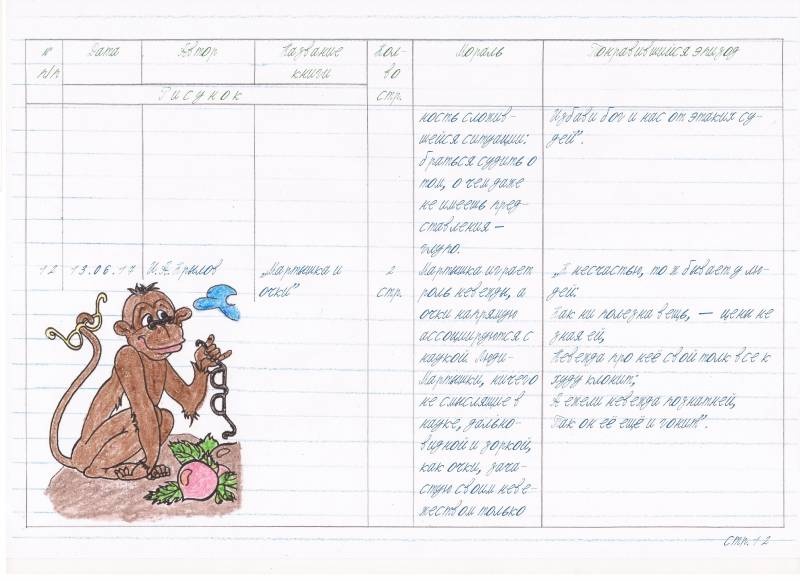 № Дата Автор Название Кол- Мораль Понравившийся эпизод
п/п книги во
Рисунок стр.
ность сложив-
шейся ситуации:
браться судить о
том, о чем даже
не имеешь пред-
ставления –
глупо.
Избави бог и нас от этаких су-
дей".
12 13.06.17 И.А.Крылов „Мартышка и 2
очки" стр.
Мартышка играет
роль невежды, а
очки напрямую
ассоциируются с
наукой. Люди-
Мартышки, ничего
не смыслящие в
науке, дально-
видной и зоркой,
как очки, зача-
стую своим неве-
жеством только
„К несчастью, то ж бывает у лю-
дей:
Как ни полезна вещь, – цены не
зная ей,
Невежда про неё свой толк все к
худу клонит;
А ежели невежда познатней,
Так он её ещё и гонит".
стр. 12